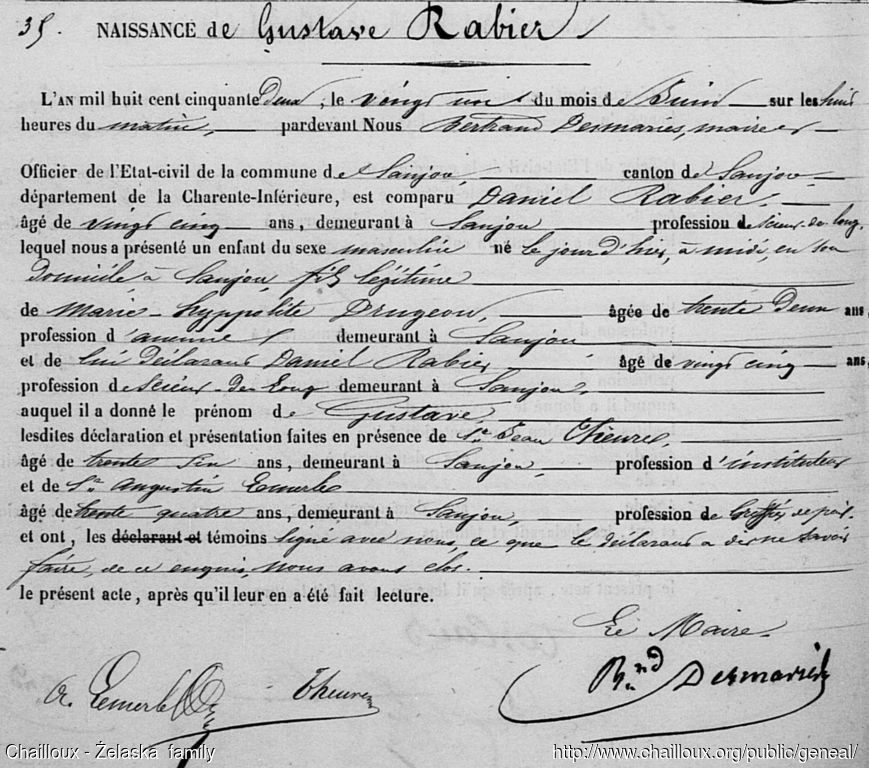 35. NAISSANCE de Gustave Rabier
L'AN mil huit cent cinquante deux, le vingt un du mois de Juin sur les huit
heures du matin, pardevant Nous Bertrand Desmaries, maire et
Officier de l'Etat-civil de la commune de Saujon canton de Saujon
département de la Charente-Inférieure, est comparu Daniel Rabier,
âgé de vingt cinq ans, demeurant à Saujon profession de scieur de long,
lequel nous a présenté un enfant du sexe masculin né le jour d'hier, à midi, en son
domicile à Saujon, fils légitime
de Marie-Hyppolite Drugeon, âgée de trente deux ans,
profession d'aucune demeurant à Saujon
et de lui déclarant Daniel Rabier âgé de vingt cinq ans,
profession de scieur de long demeurant à Saujon,
auquel il a donné le prénom de Gustave
lesdites déclaration et présentation faites en présence de Sr. Jean
âgé de trente six ans, demeurant à Saujon, profession d'instituteur
et de Sr. Augustin
âgé de trente quatre ans, demeurant à Saujon, profession de Greffier de paix.
et ont, les déclarant et témoins signé avec nous, ce que le déclarant a dit ne savoir
faire, de ce enquis, nous avons clos.
le présent acte, après qu'il leur en a été fait lecture.
Le Maire,
Bnd Desmaries
Chailloux - Żelaska family http://www.chailloux.org/public/geneal/